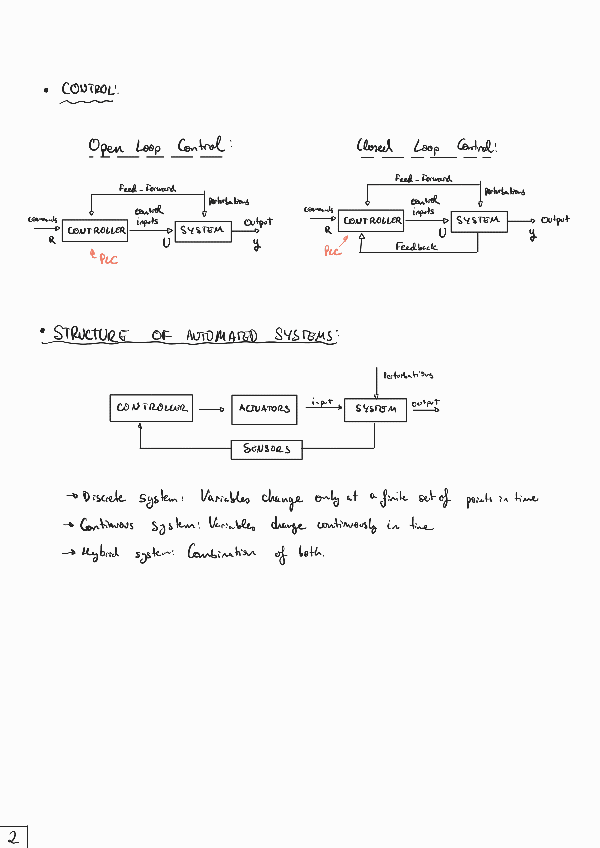 • CONTROL:
Open Loop Control:
Feed-Forward
Perturbations
commands
R
CONTROLLER
control
inputs
U
SYSTEM
Output
y
PLC
Closed Loop Control:
Feed-Forward
Perturbations
commands
R
CONTROLLER
control
inputs
U
SYSTEM
Output
y
Feedback
PLC
• STRUCTURE OF AUTOMATED SYSTEMS:
Perturbations
CONTROLLER
ACTUATORS
input
SYSTEM
output
SENSORS
→ Discrete system: Variables change only at a finite set of points in time
→ Continuous system: Variables change continuously in time
→ Hybrid system: Combination of both.
2